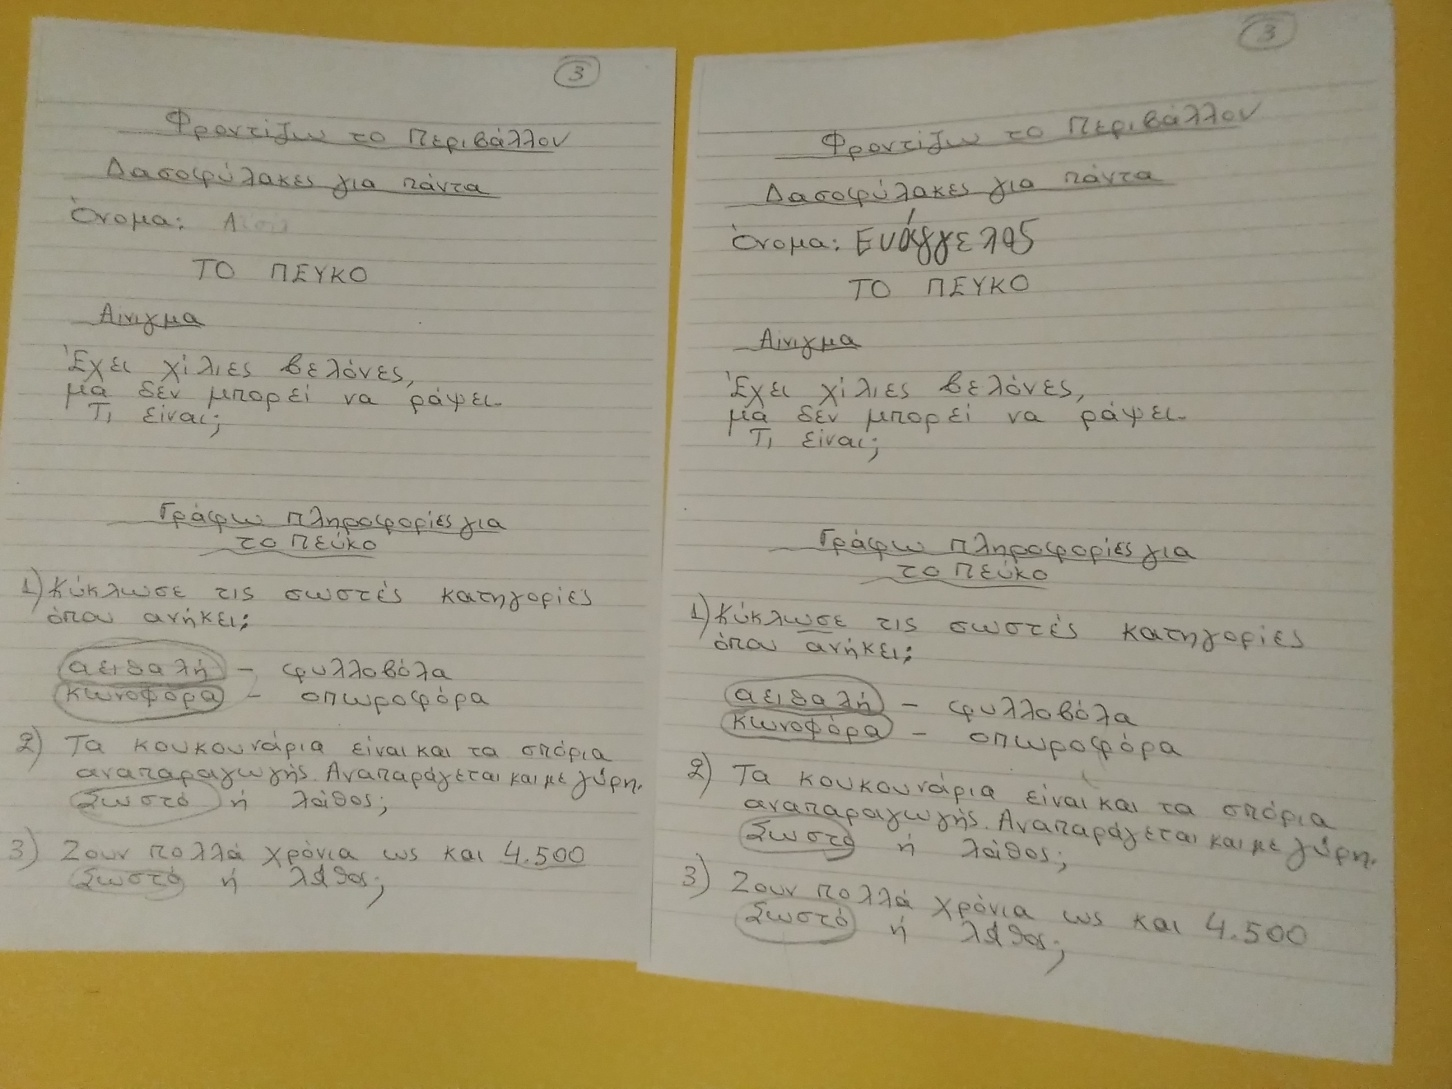 3
Φροντίζω το Περιβάλλον
Δασοφύλακες για πάντα
Όνομα:
ΤΟ ΠΕΥΚΟ
Αίνιγμα
Έχει χίλιες βελόνες,
μα δεν μπορεί να ράψει.
Τι είναι;
Γράφω πληροφορίες για
το πεύκο
1) Κύκλωσε τις σωστές κατηγορίες
όπου ανήκει;
αειθαλή - φυλλοβόλα
κωνοφόρα - οπωροφόρα
2) Τα κουκουνάρια είναι και τα σπόρια
αναπαραγωγής. Αναπαράγεται και με γύρη.
Σωστό ή λάθος;
3) Ζουν πολλά χρόνια ως και 4.500
Σωστό ή λάθος;
3
Φροντίζω το Περιβάλλον
Δασοφύλακες για πάντα
Όνομα: Ευάγγελος
ΤΟ ΠΕΥΚΟ
Αίνιγμα
Έχει χίλιες βελόνες,
μα δεν μπορεί να ράψει.
Τι είναι;
Γράφω πληροφορίες για
το πεύκο
1) Κύκλωσε τις σωστές κατηγορίες
όπου ανήκει;
αειθαλή - φυλλοβόλα
κωνοφόρα - οπωροφόρα
2) Τα κουκουνάρια είναι και τα σπόρια
αναπαραγωγής. Αναπαράγεται και με γύρη.
Σωστό ή λάθος;
3) Ζουν πολλά χρόνια ως και 4.500
Σωστό ή λάθος;